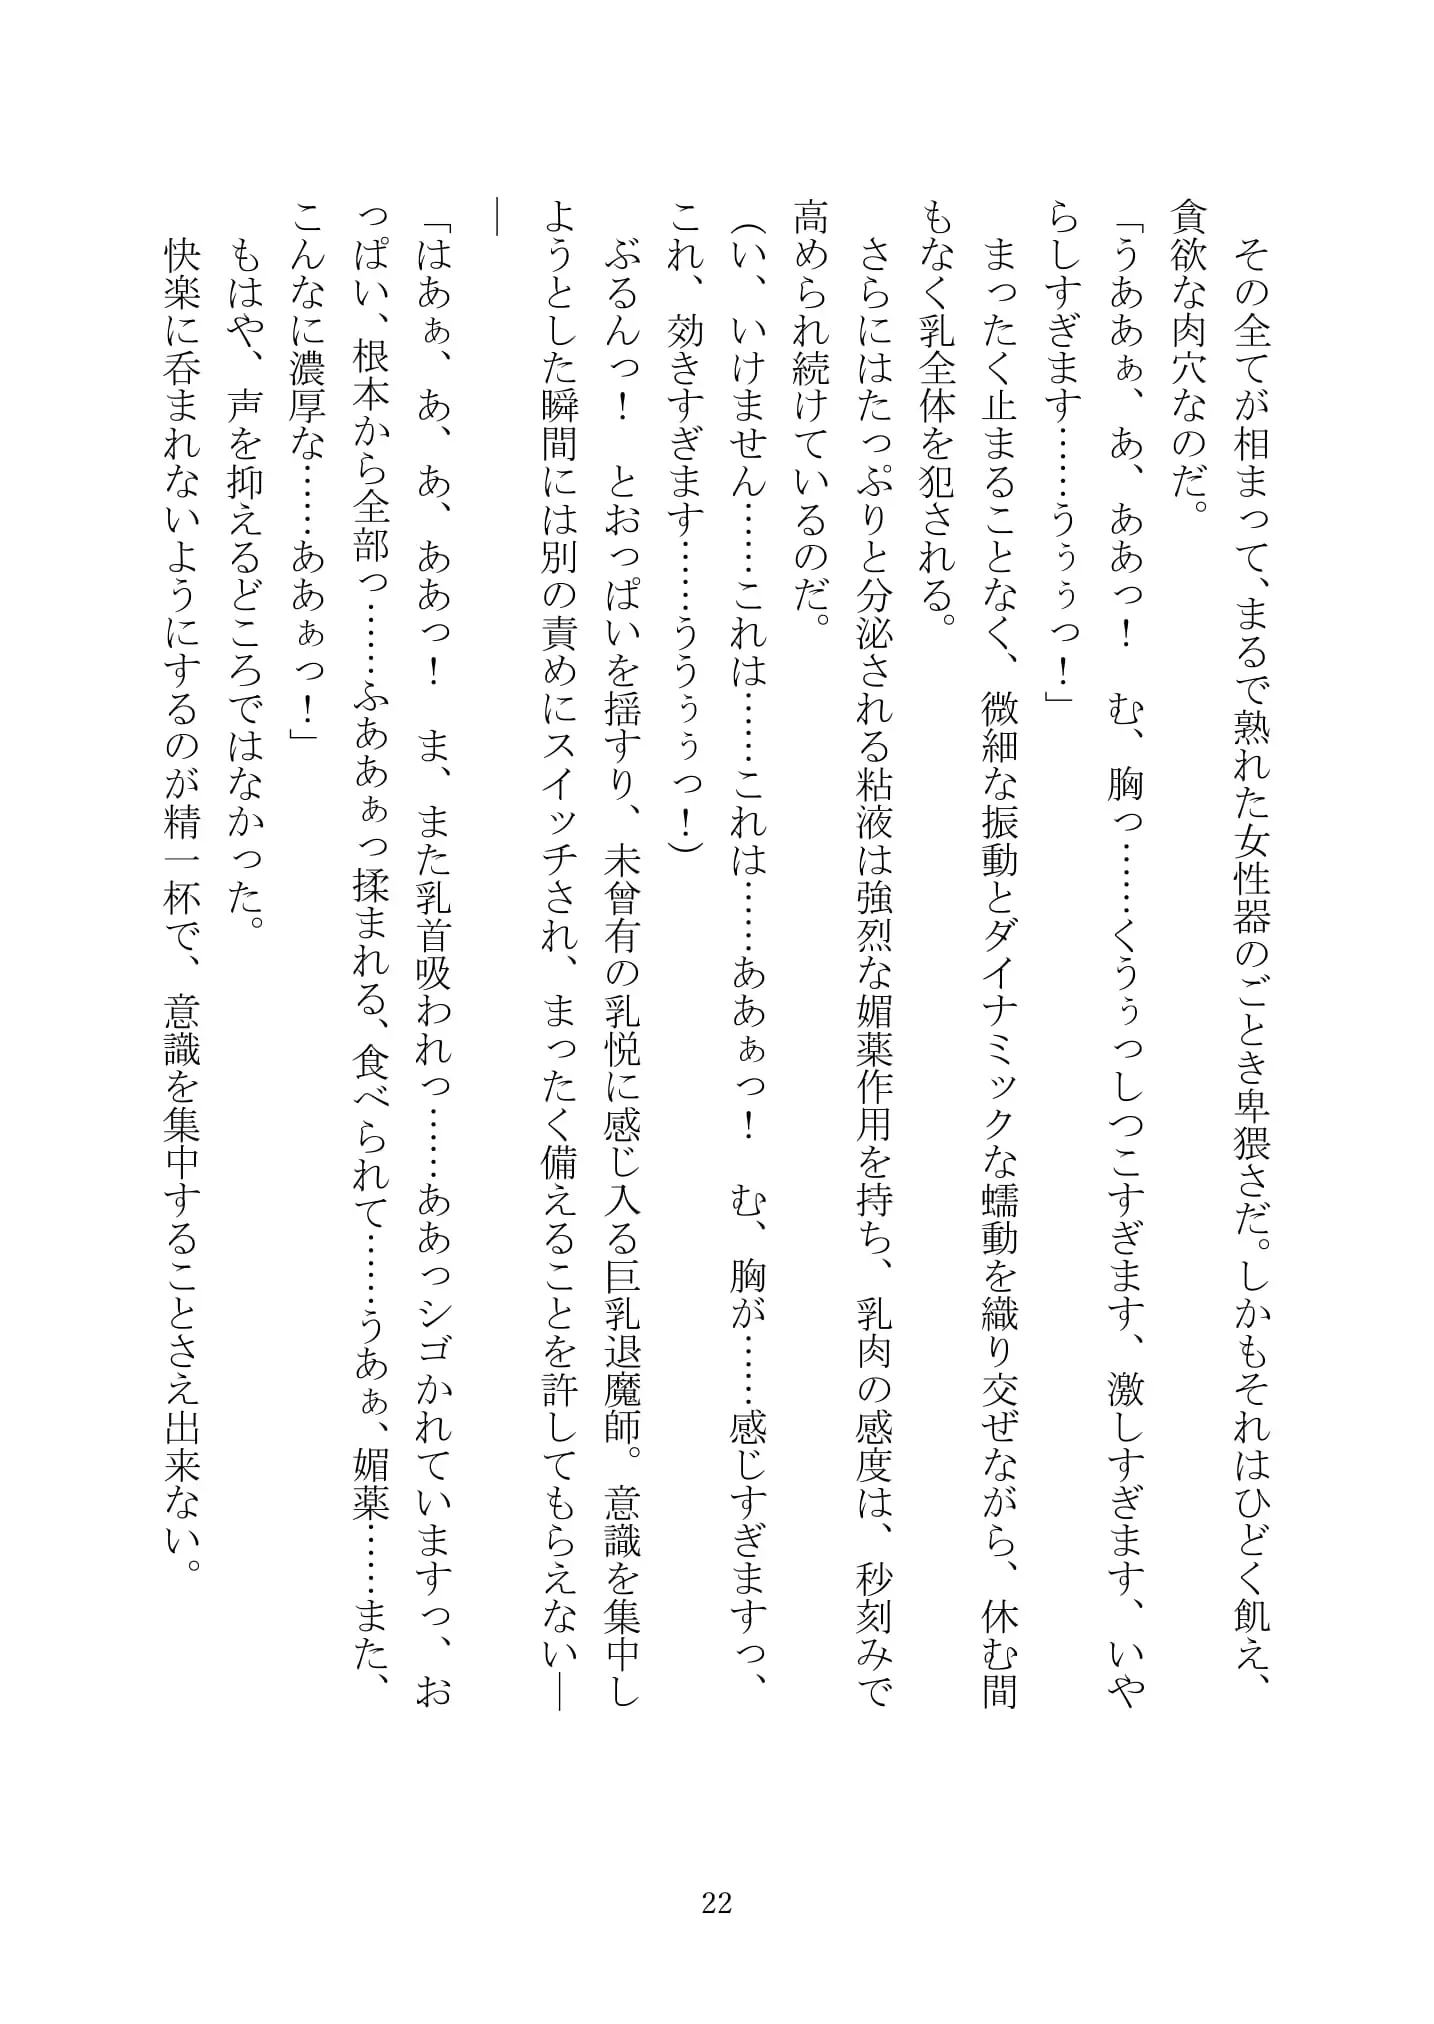 その全てが相まって、まるで熟れた女性器のごとき卑猥さだ。しかもそれはひどく飢え、
貪欲な肉穴なのだ。
「うああぁ、あ、ああっ！　む、胸っ……くうぅっしつこすぎます、激しすぎます、いや
らしすぎます……うぅぅっ！」
まったく止まることなく、微細な振動とダイナミックな蠕動を織り交ぜながら、休む間
もなく乳全体を犯される。
さらにはたっぷりと分泌される粘液は強烈な媚薬作用を持ち、乳肉の感度は、秒刻みで
高められ続けているのだ。
（い、いけません……これは……これは……ああぁっ！　む、胸が……感じすぎますっ、
これ、効きすぎます……ううぅぅっ！）
ぶるんっ！　とおっぱいを揺すり、未曾有の乳悦に感じ入る巨乳退魔師。意識を集中し
ようとした瞬間には別の責めにスイッチされ、まったく備えることを許してもらえない―
―
「はあぁ、あ、あ、ああっ！　ま、また乳首吸われっ……ああっシゴかれていますっ、お
っぱい、根本から全部っ……ふああぁっ揉まれる、食べられて……うあぁ、媚薬……また、
こんなに濃厚な……ああぁっ！」
もはや、声を抑えるどころではなかった。
快楽に呑まれないようにするのが精一杯で、意識を集中することさえ出来ない。
22